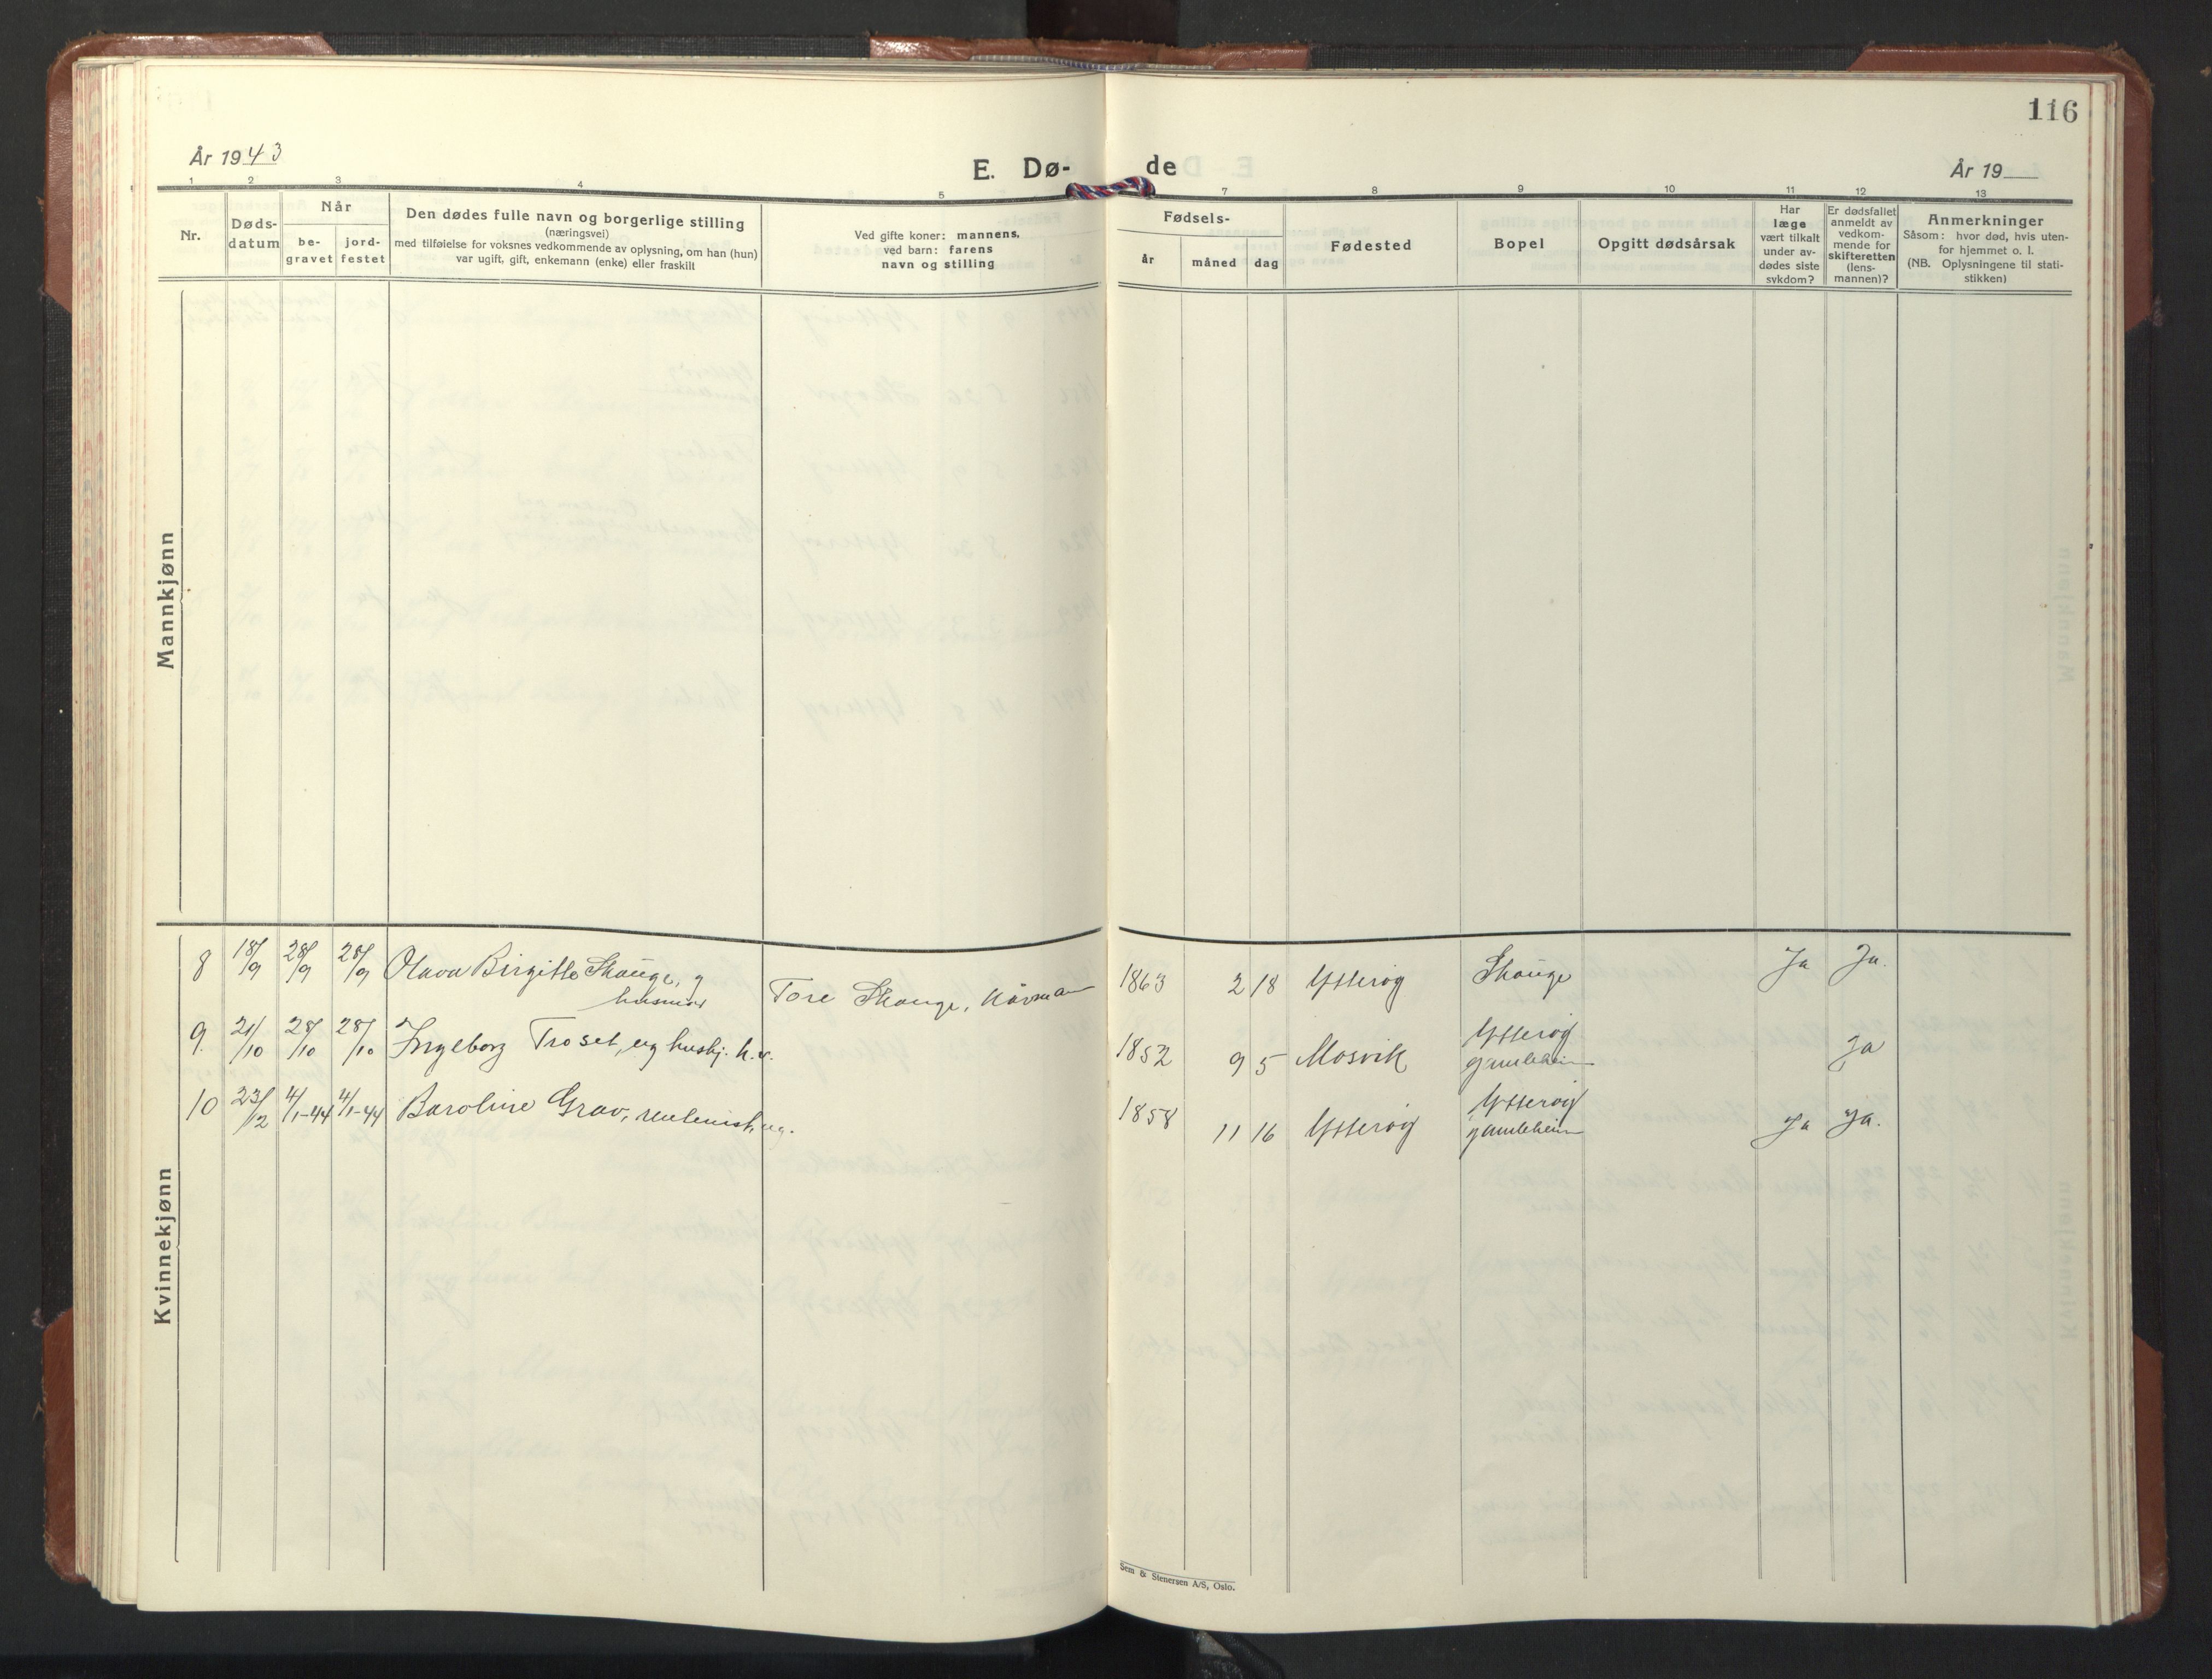 116
År 1943
E. Dø-
de
År 19
1 2 3 4 5 7 8 9 10 11 12 13
Nr.
Døds-
datum
Når
be-
gravet
jord-
festet
Den dødes fulle navn og borgerlige stilling
(næringsvei)
med tilføielse for voksnes vedkommende av oplysning, om han (hun)
var ugift, gift, enkemann (enke) eller fraskilt
Ved gifte koner: mannens,
ved barn: farens
navn og stilling
Fødsels-
år
måned
dag
Fødested
Bopel
Opgitt dødsårsak
Har
læge
vært tilkalt
under av-
dødes siste
sykdom?
Er dødsfallet
anmeldt av
vedkom-
mende for
skifteretten
(lens-
mannen)?
Anmerkninger
Såsom: hvor død, hvis uten-
for hjemmet o. l.
(NB. Oplysningene til stati-
stikken)
Mannkjønn
Kvinnekjønn
8 18/9 28/9 28/9 Olava Birgitte Skauge, g
husmor
Tore Skauge, kårmann 1863 2 18 Ytterøy Skauge Ja Ja.
9. 21/10 28/10 28/10 Ingeborg Troset, ug hushj. 1852 9 5 Mosvik Ytterøy
gamleheim Ja
10 23/12 4/1-44 4/1-44 Baroline Grav, ug. 1858 11 16 Ytterøy Ytterøy
gamleheim Ja Ja.
Sem & Stenersen A/S, Oslo.